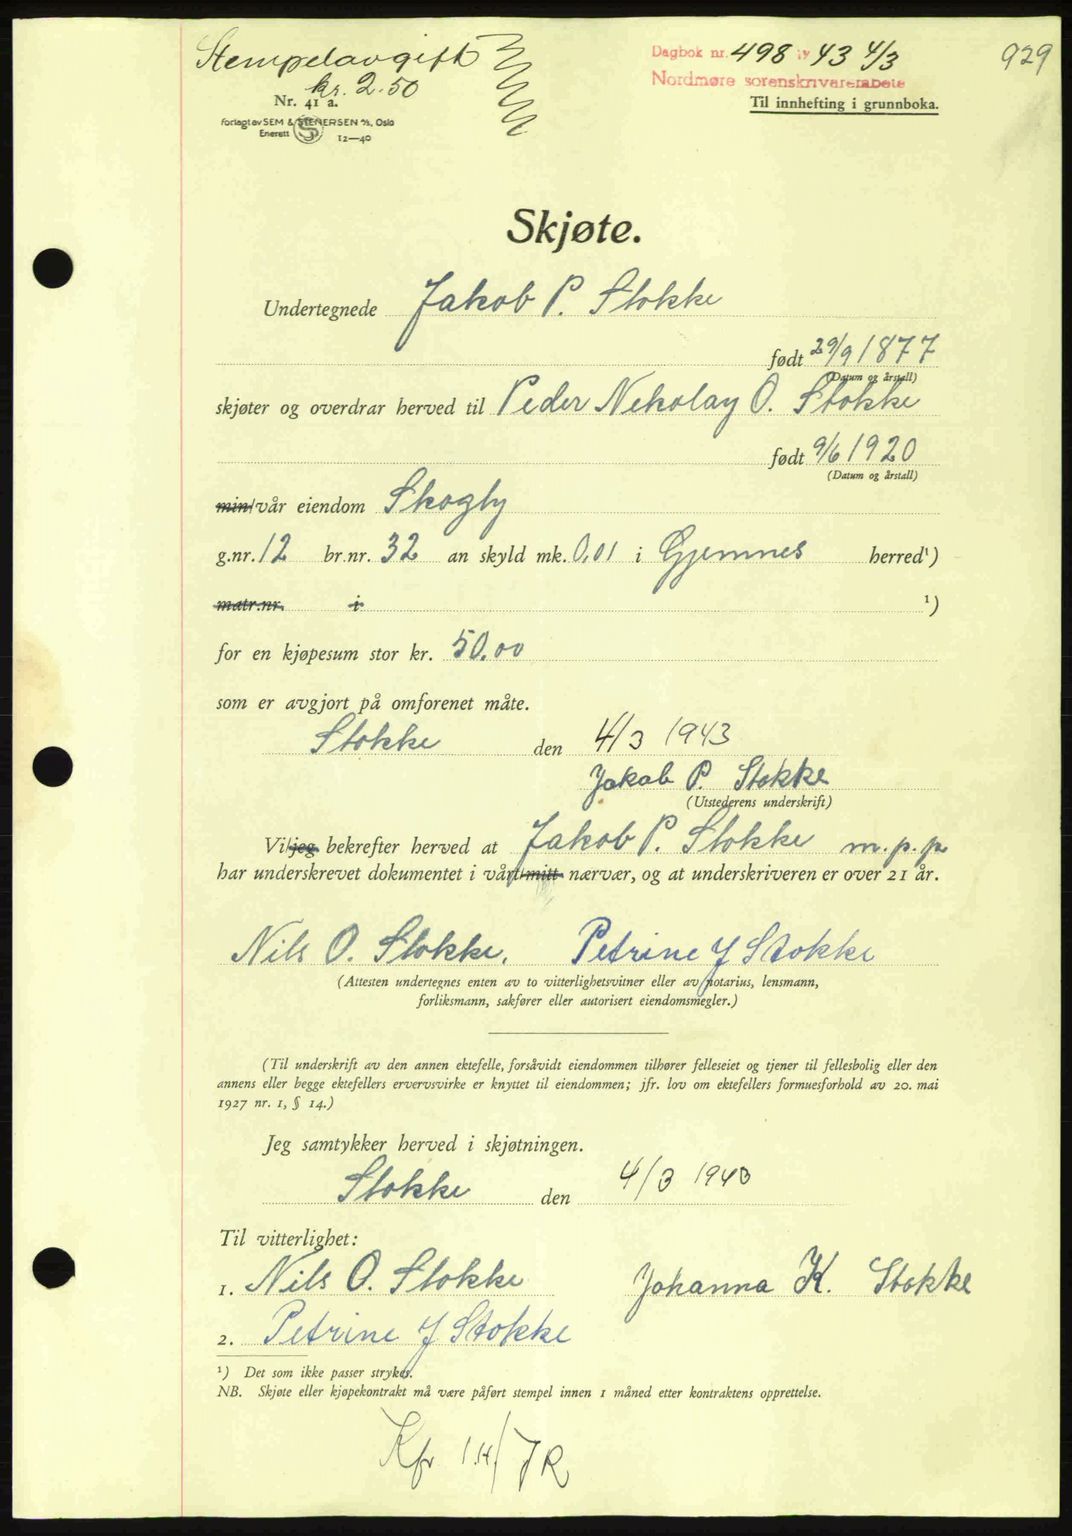 Stempelavgift
kr. 2.50
Nr. 41 a.
Forlagt av SEM & STENERSEN A/S, Oslo
Enerett
S
12—40
Dagbok nr. 498 43 4/3
929
Nordmøre sorenskriverembete
Til innhefting i grunnboka.
Skjøte.
Undertegnede Jakob P. Stokke
født 29/9 1877
(Datum og årstall)
skjøter og overdrar herved til Peder Nekolay O. Stokke
født 9/6 1920
(Datum og årstall)
min/vår eiendom Skogly
g.nr. 12 br.nr. 32 an skyld mk. 0,01 i Gjemnes herred¹)
matr.nr. i ¹)
for en kjøpesum stor kr. 50.00
som er avgjort på omforenet måte.
Stokke den 4/3 1943
Jakob P. Stokke
(Utstederens underskrift)
Vi/jeg bekrefter herved at Jakob P. Stokke m.p.p
har underskrevet dokumentet i vårt/mitt nærvær, og at underskriveren er over 21 år.
Nils O. Stokke. Petrine J Stokke
(Attesten undertegnes enten av to vitterlighetsvitner eller av notarius, lensmann,
forliksmann, sakfører eller autorisert eiendomsmegler.)
(Til underskrift av den annen ektefelle, forsåvidt eiendommen tilhører felleseiet og tjener til fellesbolig eller den
annens eller begge ektefellers ervervsvirke er knyttet til eiendommen; jfr. lov om ektefellers formuesforhold av 20. mai
1927 nr. 1, § 14.)
Jeg samtykker herved i skjøtningen.
Stokke den 4/3 1943
Til vitterlighet:
1. Nils O. Stokke Johanna K. Stokke
2. Petrine J Stokke
¹) Det som ikke passer strykes.
NB. Skjøte eller kjøpekontrakt må være påført stempel innen 1 måned etter kontraktens opprettelse.